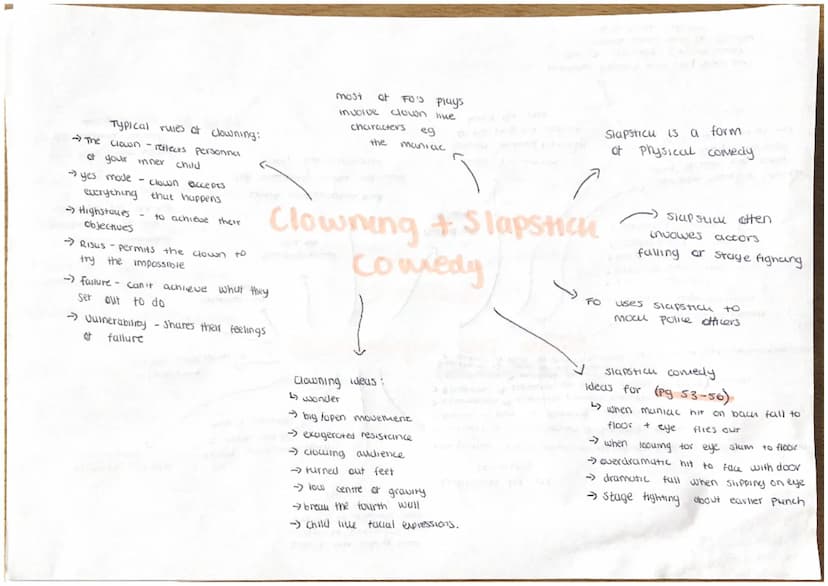 Clowning + Slapstick
Comedy
Typical rules of clowning:
→ The clown - reflects personna
of your inner child
→ yes mode - clown accepts
everything that happens
→ Highstakes - to achieve their
objectives
→ Risks - permits the clown to
try the impossible
→ Failure - can't achieve what they
set out to do
→ Vulnerability - shares their feelings
of failure
most of FO's plays
involve clown like
characters eg
the maniac
Slapstick is a form
of physical comedy
→ Slapstick often
involves actors
falling or stage fighting
FO uses slapstick to
mock police officers
Clowning ideas:
↳ wonder
→ big/open movement
→ exagerated resistance
→ clowing audience
→ turned out feet
→ low centre of gravity
→ break the fourth wall
→ child like facial expressions.
slapstick comedy
ideas for (pg 53-56)
↳ when maniac hit on back fall to
floor + eye flies out
→ when looking for eye slam to floor
→ overdramatic hit to face with door
→ dramatic fall when slipping on eye
→ stage fighting about earlier punch